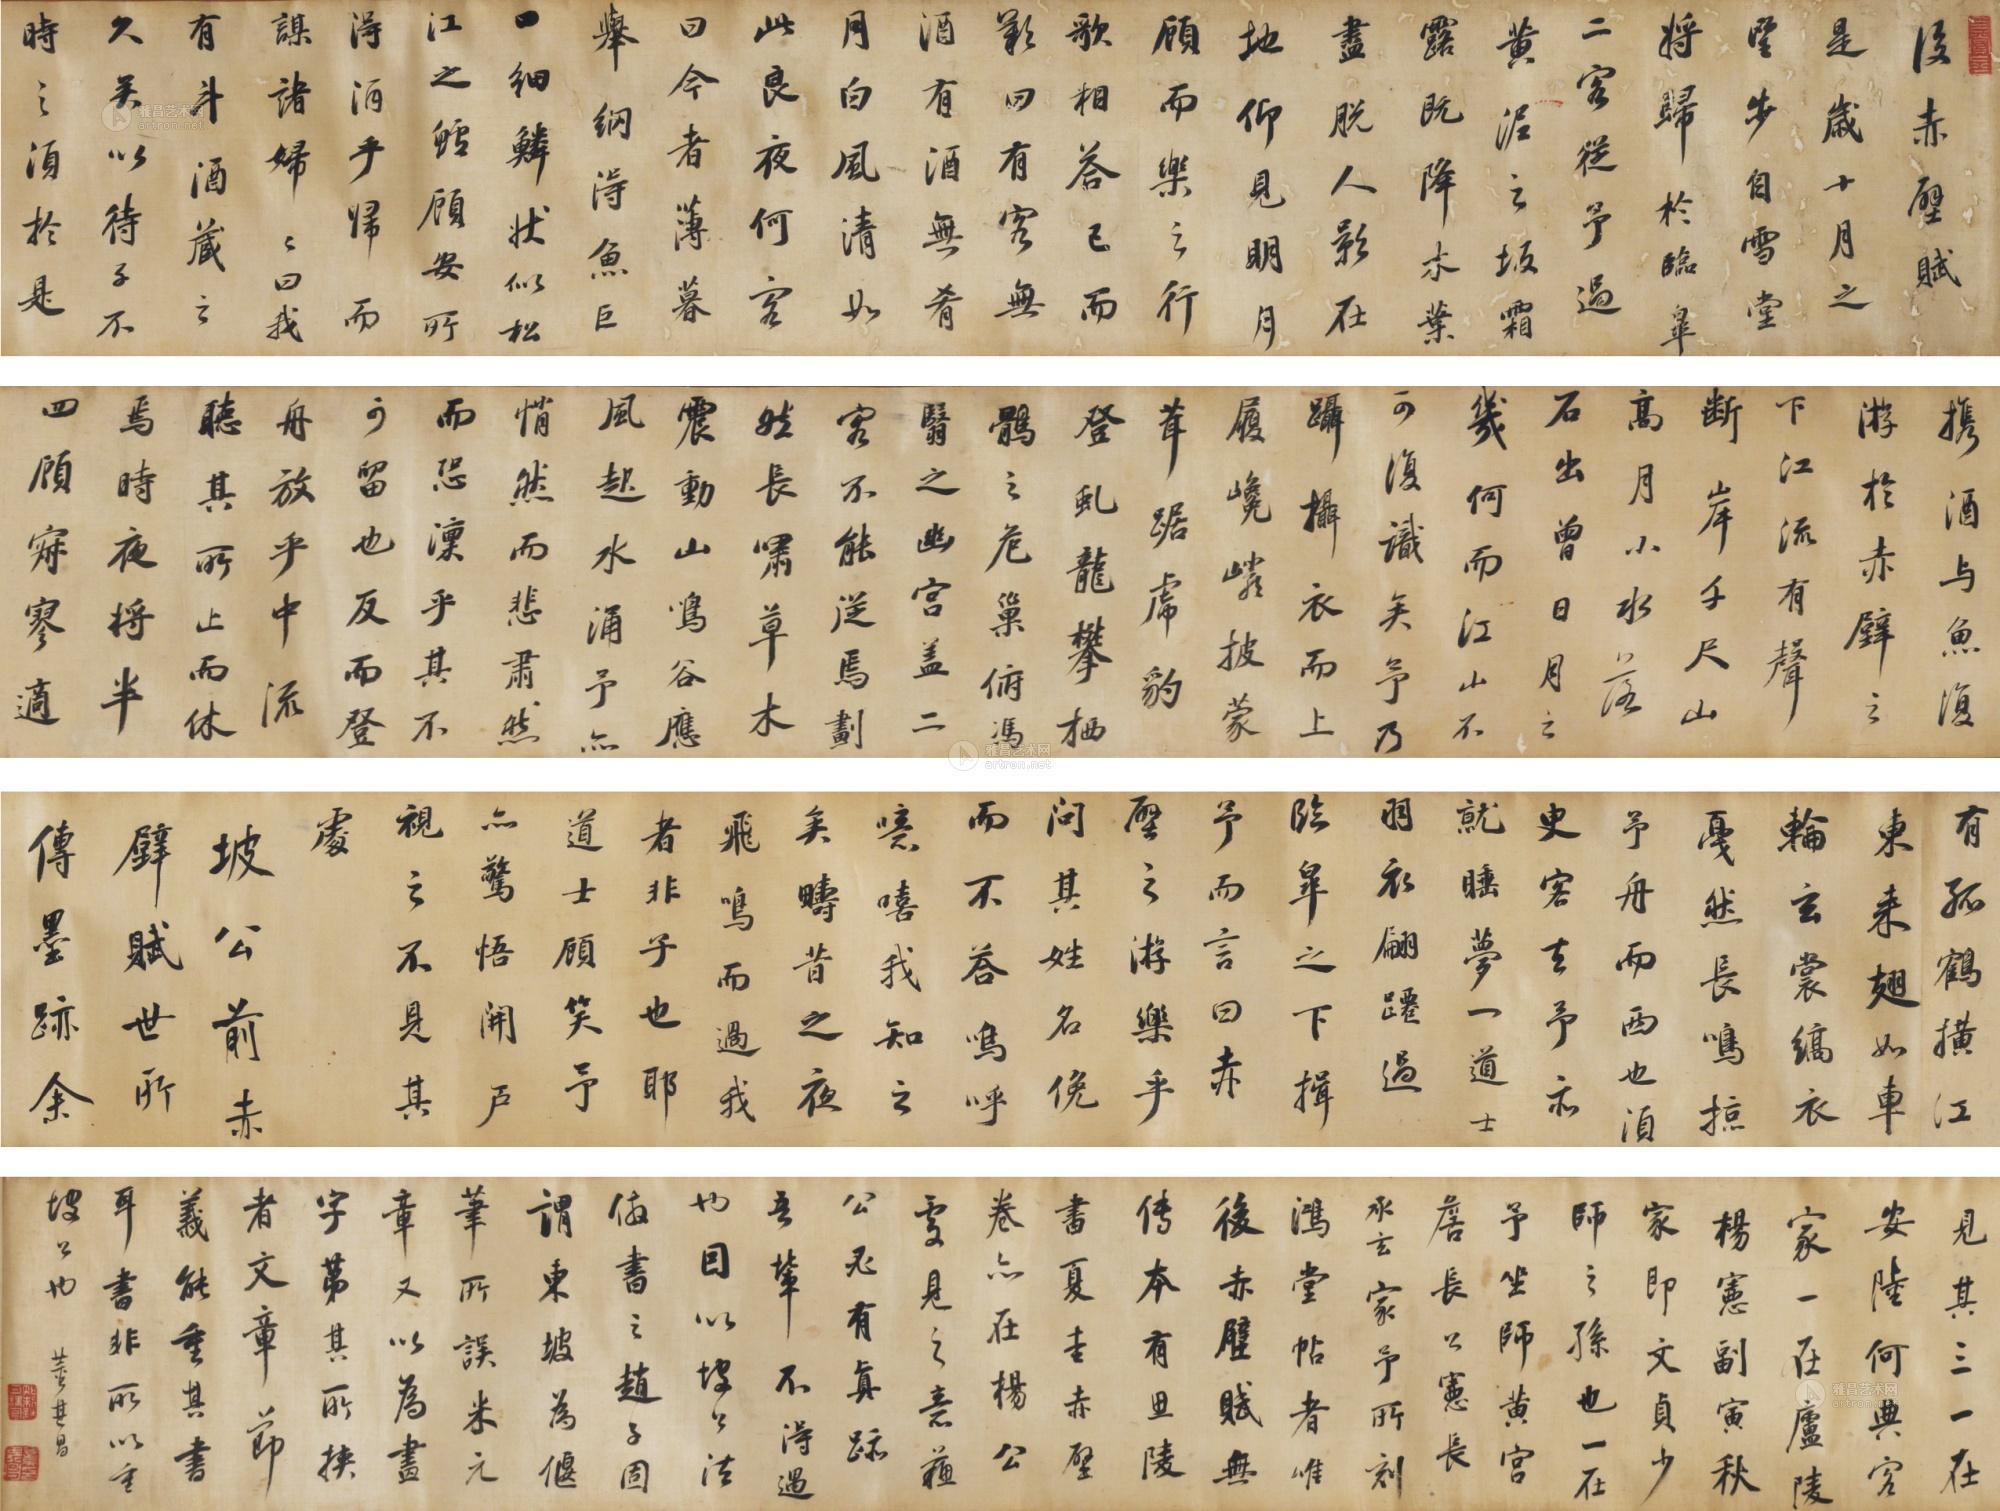 後赤壁賦
是歲十月之
望步自雪堂
將歸於臨皐
二客從予過
黃泥之坂霜
露既降木葉
盡脫人影在
地仰見明月
顧而樂之行
歌相答已而
歎曰有客無
酒有酒無肴
月白風清如
此良夜何客
曰今者薄暮
舉網得魚巨
口細鱗狀似松
江之鱸顧安所
得酒乎歸而
謀諸婦〻曰我
有斗酒藏之
久矣以待子不
時之須於是
攜酒与魚復
游於赤壁之
下江流有聲
斷岸千尺山
高月小水落
石出曾日月之
幾何而江山不
可復識矣予乃
躡攝衣而上
履巉巖披蒙
茸踞虎豹
登虬龍攀栖
鶻之危巢俯馮
翳之幽宮蓋二
客不能從焉劃
然長嘯草木
震動山鳴谷應
風起水涌予亦
悄然而悲肅然
而恐凜乎其不
可留也反而登
舟放乎中流
聽其所止而休
焉時夜將半
四顧寂寥適
有孤鶴橫江
東來翅如車
輪玄裳縞衣
戛然長鳴掠
予舟而西也須
史客去予亦
就睡夢一道士
羽衣翩躚過
臨皐之下揖
予而言曰赤
壁之游樂乎
問其姓名俛
而不答嗚呼
噫嘻我知之
矣疇昔之夜
飛鳴而過我
者非子也耶
道士顧笑予
亦驚悟開戶
視之不見其
處
坡公前赤
壁賦世所
傳墨跡余
見其三一在
安陸何典客
家一在廬陵
楊憲副寅秋
家即文貞少
師之孫也一在
予坐師黃宮
詹長公憲長
承玄家予所刻
鴻堂帖者唯
後赤壁賦無
傳本有丑陵
書夏圭赤壁
卷亦在楊公
處見之意蘇
公必有真跡
吾輩不得過
也因以坡公法
倣書之趙子固
謂東坡為偃
筆所誤米元
章又以為畫
字第其所挾
者文章節
義能重其書
耳書非所以重
坡公也 董其昌
雅昌艺术网
artron.net
雅昌艺术网
artron.net
雅昌艺术网
artron.net